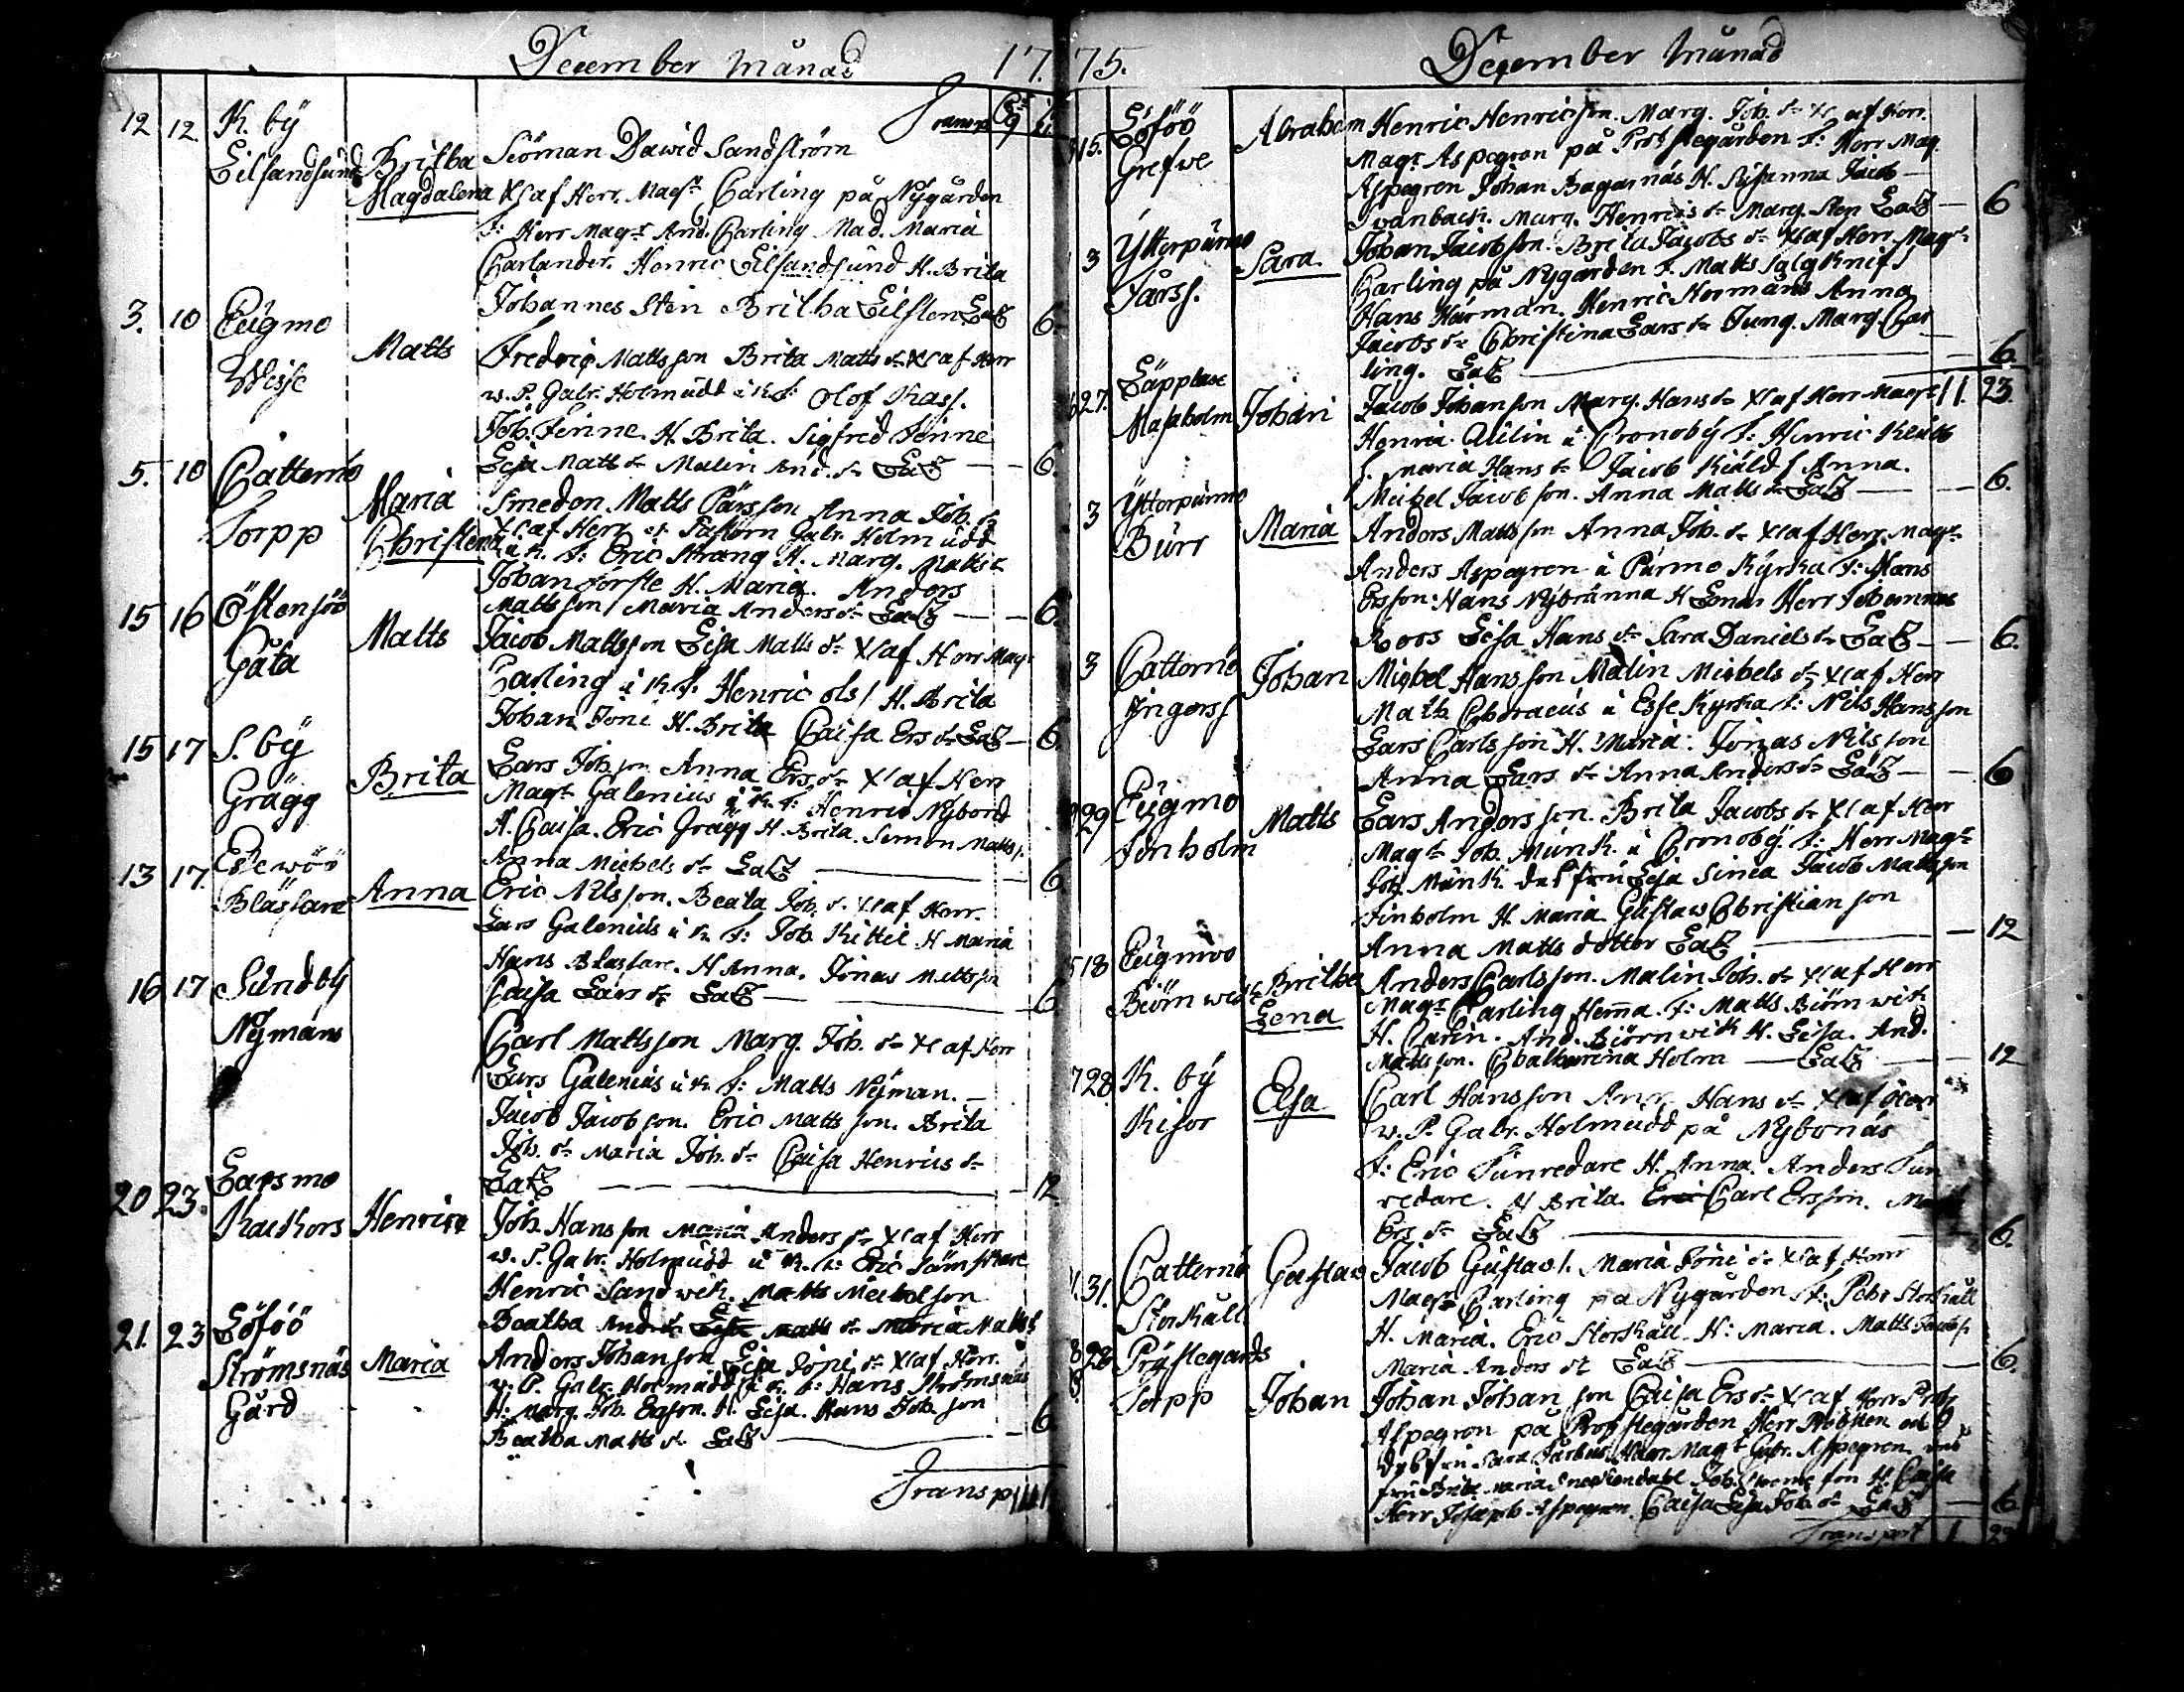 December Månad 17
Transp 6
12 12 K. by
Lillsandsund Britha Siöman Dawid Sandström
Magdalena Xl af Herr. Magr Carling på Nygården
F: Herr Magr And. Carling Mad. Maria
Carlander. Henric Lillsandsund H. Brita
Johannes Sten Britha Lillsten Latz 6.
3. 10 Pugmo
Wisse Matts Fredric Mattsson Brita Matts dr Xl af Herr
w. P. Gabr. Holmudd i K. F: Olof Kass.
Joh. Finne. H. Brita. Sigfred Finne
Lisa Matts dr Malin And. dr Latz — 6.
5. 10 Katternö
Torpp Maria Christena Smeden Matts Pärsson Anna Joh. dr
Xl af Herr v. Pastorn Gabr. Holmudd
i K. F: Eric Strang H. Marg. Matts dr
Johan Forste H. Maria. Anders
Mattsson Maria Anders dr Latz — 6.
15 16 Östensöö
Gåta Matts Jacob Mattsson Lisa Matts dr Xl af Herr Magr
Carling i K. F: Henric Ols. H. Brita
Johan Jöni H. Brita Caisa Ers dr Latz — 6.
15 17 S. by
Grägg Brita Lars Johsson Anna Ers dr Xl af Herr
Magr Galenius i K. F: Henric Nybond
H. Caisa. Eric Grägg H. Brita. Simon Mattss.
Anna Michels dr Latz — 6.
13 17. Edewöö
Blässare Anna Eric Nilsson. Beata Joh. dr Xl af Herr.
Lars Galenius i K. F: Joh. Kittil H Maria
Hans Blässare. H Anna. Jonas Mattsson
Caisa Lars dr Latz — 6.
16 17 Sundby
Nymans
Carl Mattsson Marg. Joh. dr Xl af Herr
Lars Galenius i K. F: Matts Nyman. —
Jacob Jacobsson. Eric Mattsson. Brita
Joh. dr Maria Joh. dr Caisa Henrics dr
Latz — 12.
20 23. Larsmo
Kackors Henrica Joh. Hansson Maria Anders dr Xl af Herr
w. P. Gabr. Holmudd i K. F: Eric
Henric Sandwik. Matts Michelsson
Beatha And. dr Lisa Matts dr Maria Matts
21. 23 Löföö
Strömsnäs
Gård Maria Anders Johansson Lisa Jöni dr Xl af Herr.
w. P. Gabr. Holmudd i K. F: Hans Strömsnäs
H: Marg. Joh. Ersson. H. Lisa. Hans Johsson
Beatha Matts dr Latz — 6
Transp
75. December Månad
15. Löföö
Grefwe Abraham Henric Henricsson. Marg. Joh. dr Xl af Herr.
Magr Aspegren på Probstegården F: Herr Mag.
Aspegren Johan Bagarnäs H. Susanna Jacob
Swanbäck. Marg. Henrics dr Marg. Sten Latz — 6
3 Ytterpurmo
Fårss. Sara Johan Jacobsson. Brita Jacobs dr Xl af Herr Magr
Carling på Nygården F. Matts Salg Knif
Hans Hårman. Henric Kormans Anna
Jacobs dr Christina Lars dr Jung. Marg. Car
ling. Latz — 6.
27. Läpplax
Masaholm Johan Jacob Johansson Marg. Hans dr Xl af Herr Magr 11. 23.
Henric Aulin i Cronoby F: Henric Klubb
Maria Hans dr Jacob Anna.
Michel Jacobsson. Anna Matts dr Latz — 6.
3 Ytterpurmo
Burr Maria Anders Mattsson Anna Joh. dr Xl af Herr Magr
Anders Aspegren i Purmo Kyrka F: Hans
Ersson. Hans Nybränna H Lena. Herr Johannes
Roos Lisa Hans dr Sara Daniels dr Latz — 6.
3 Catternö
Ingerss Johan Michel Hansson Malin Michels dr Xl af Herr
Math Choraeus i Esse Kyrka F: Nils Hansson
Lars Carlsson H. Maria. Jonas Nilsson
Anna Lars dr Anna Anders dr Latz — 6
29 Pugmo
Finholm Matts Lars Andersson. Brita Jacobs dr Xl af Herr
Magr Joh. Munk. i Cronoby. F: Herr Magr
Joh. Munk. des fru Lisa Jacob Mattsson
Finholm H. Maria Gustaw Christiansson
Anna Matts dotter Latz — 12
18 Pugmoo
Biörnwik Britha Lena Anders Carlsson. Malin Joh. dr Xl af Herr
Magr Carling Hemma. F: Matts Biörnwik
H. Carin. And. Biörnwik H. Lisa. And.
Mattsson. Chatharina Holm — Latz — 12
28. K. by
Kisor Elsa Carl Hansson Ann. Hans dr Xl af Herr
w. P. Gabr. Holmudd på Nybonäs
F: Eric Tunredare H. Anna. Anders Tun
redare. H Brita. Eric Carl Ersson.
Ers dr Latz — 6.
31. Catternö
Storkåll Gustaw Jacob Gustaws. Maria Jöni dr Xl af Herr
Magr Carling på Nygården F: Pehr Storkåll
H. Maria. Eric Storkåll. H: Maria. Matts Jacobs.
Maria Anders dr Latz — 6.
28 Prystegårds
Torpp Johan Johan Johansson Caisa Ers dr Xl af Herr Prob
Aspegren på Probstegården Herr Probsten och
des fru Sara Herr Magr Gabr. Aspegren
fru Brita Maria H. Caisa
Herr Joseph Aspegren. Caisa Lisa Joh. dr Latz — 6
Transport 1